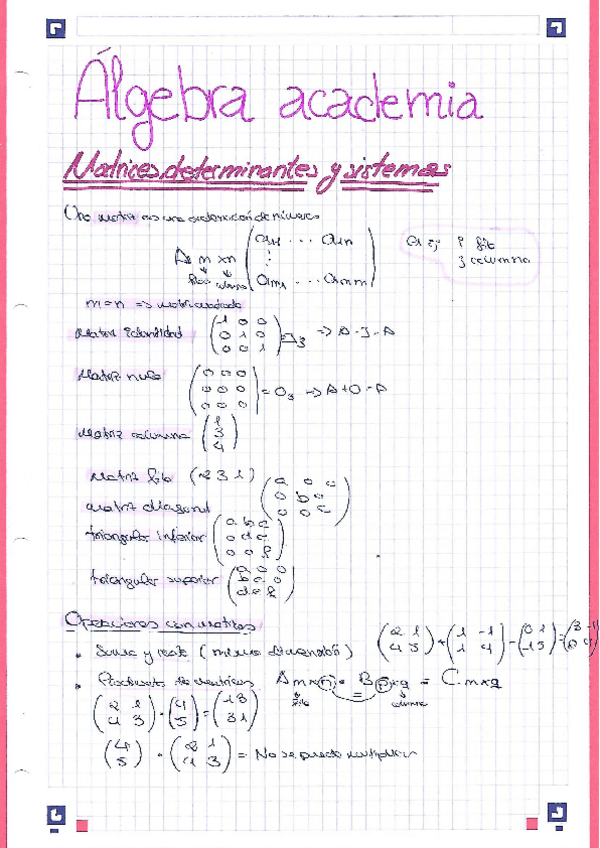 Álgebra academia
Matrices, determinantes y sistemas
Una matriz es una ordenación de números
A m x n ( a11 ... a1n
⋮
am1 ... amn )
filas columnas
aij i fila
j columna
m = n => matriz cuadrada
Matriz identidad ( 1 0 0
0 1 0
0 0 1 ) = I3 => A · I = A
Matriz nula ( 0 0 0
0 0 0
0 0 0 ) = O3 => A + O = A
Matriz columna ( 1
3
4 )
Matriz fila ( 2 3 1 )
matriz diagonal ( a 0 0
0 b 0
0 0 c )
triangular inferior ( a b c
0 d e
0 0 f )
triangular superior ( a 0 0
b c 0
d e f )
Operaciones con matrices
• Suma y resta ( misma dimensión )
( 2 1
4 3 ) + ( 1 -1
1 4 ) - ( 0 1
-1 5 ) = ( 3 -1
• Producto de matrices A m x n · B p x q = C m x q
fila = columna
( 2 1
4 3 ) · ( 4
5 ) = ( 13
31 )
( 4
5 ) · ( 2 1
4 3 ) = No se puede multiplicar